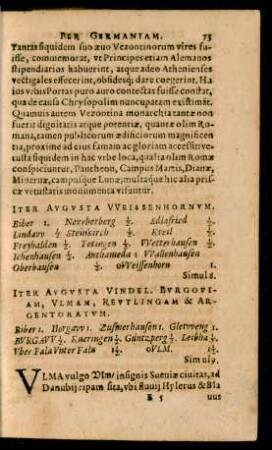 PER GERMANIAM. 73
Tantas siquidem suo æuo Vezontinorum vires fu-
isse, commemorat, vt Principes etiam Alemanos
stipendiarios habuerint, atque adeo Athenienses
vectigales effecerint, obsidesq; dare coegerint. Ha
ius vrbis Portas puro auro contestas fuisse constat,
qua de causa Chrysopolim nuncupatam existimāt.
Quamuis autem Vezontina monarchia tantæ non
fuerit dignitatis atque potentiæ, quantæ olim Ro-
mana, tamen publicorum ædificiorum magnificen
tia, proxime ad eius famam ac gloriam accessit: ve-
tusta siquidem in hac vrbe loca, qualia olim Romæ
conspiciuntur, Pantheon, Campus Martis, Dianæ,
Mineruæ, campusque Lunæ; multaque hic alia pris-
cæ vetustatis monumenta visuntur.
ITER AVGVSTA VVEISSENHORNVM,
Biber 1. Nereberberg ½. Edlasried ½.
Lindaw ½ Steinkirch ½. Kreil ½.
Freyhalden ½. Tetingen ½. VVetterhausen ½.
Ichenhausen ½. Anthameda 1 VVallenhausen
Oberhausen ½ oVVeissenhorn 1.
Simul 8.
ITER AVGVSTA VINDEL. BVRGOVI-
AM, VLMAM, REVTLINGAM & AR-
GENTORATVM.
Biber 1. Horgaw 1. Zusmerhausen 1. Gletweng 1.
BVRGAVV ½. Kneringen ½. Güntzperg ½. Leibha ½.
Vber Fala Vnter Fala 1½. oVLM. 1½.
Simul 9.
VLMA vulgo Vlm/ insignis Sueuiæ ciuitas, ad
Danubij ripam sita, vbi fluuij Hylerus & Bla
E 5 uus